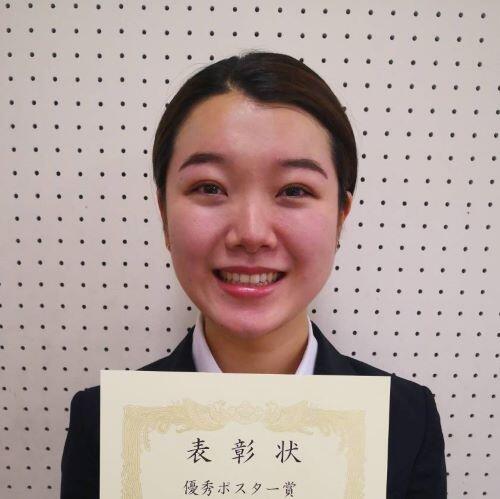 表彰状
優秀ポスター賞